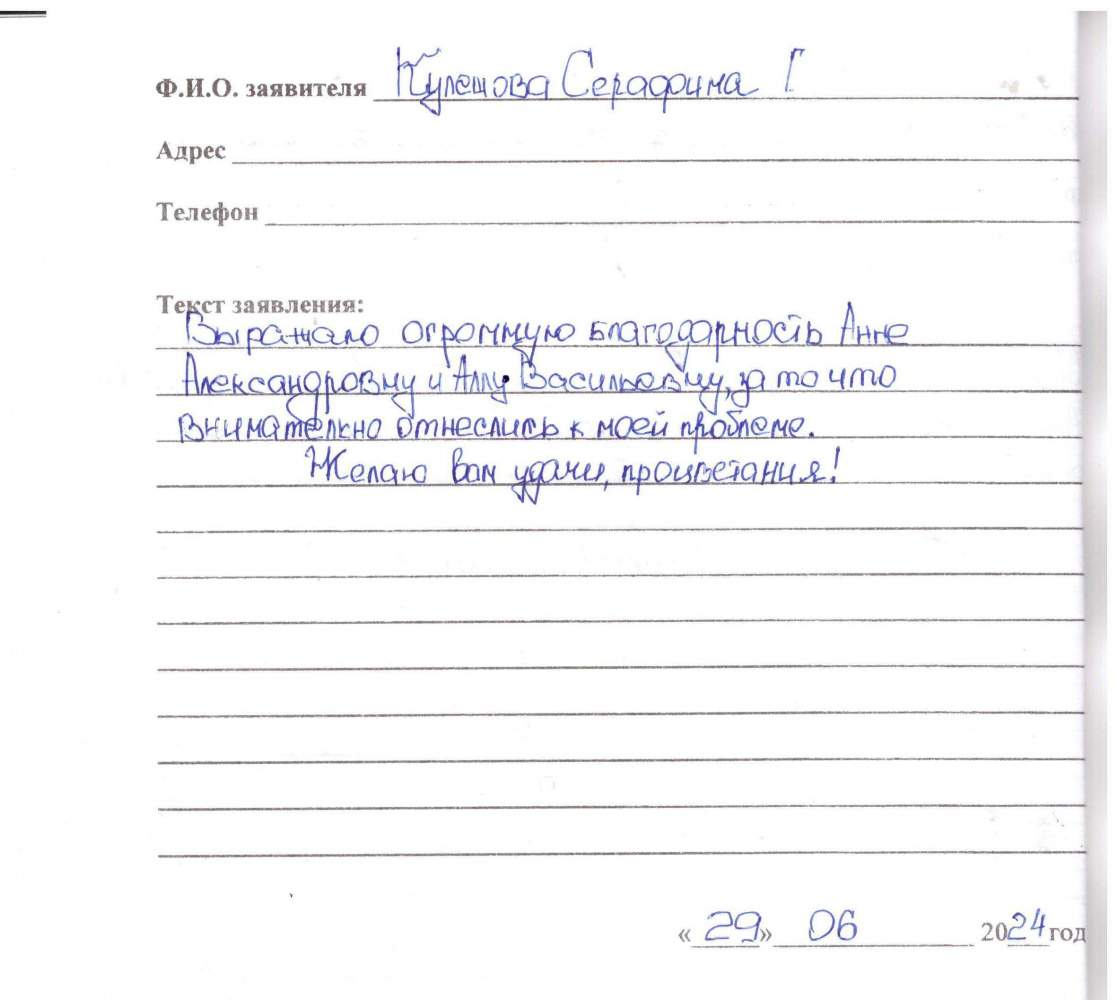 Ф.И.О. заявителя Кулешова Серафима Г
Адрес
Телефон
Текст заявления:
Выражаю огромную благодарность Анне
Александровну и Аллу Васильевну, за то что
внимательно отнеслись к моей проблеме.
Желаю вам удачи, процветания!
« 29 » 06 2024 год